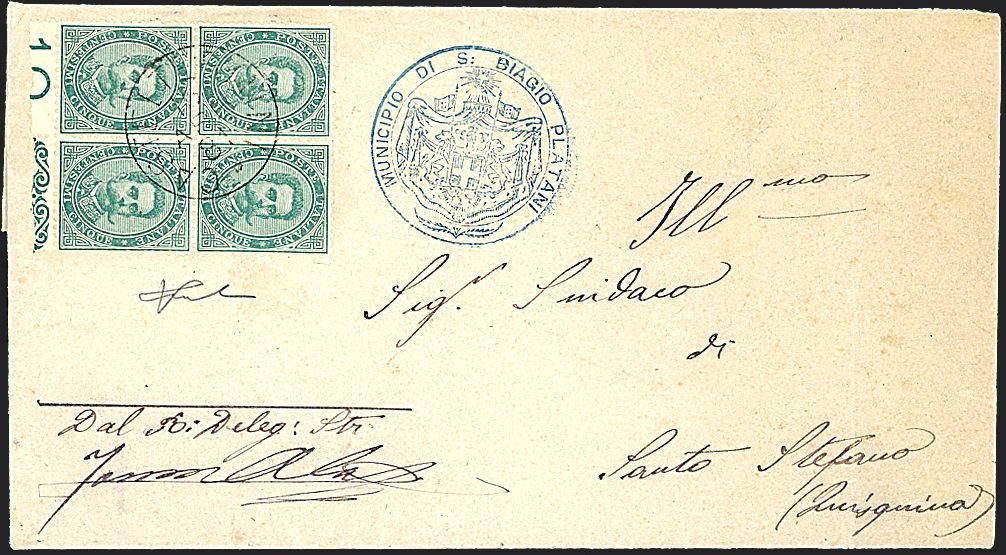 1 O
POSTE ITALIANE * CINQUE * CENTESIMI
POSTE ITALIANE * CINQUE * CENTESIMI
POSTE ITALIANE * CINQUE * CENTESIMI
POSTE ITALIANE * CINQUE * CENTESIMI
MUNICIPIO DI S: BIAGIO PLATANI
Ill mo
Sig.r Sindaco
di
Santo Stefano
(Quisquina)
Dal R: Deleg: Str: